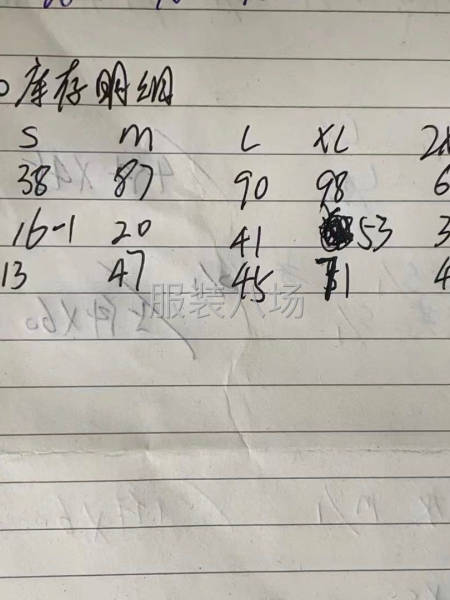 库存明细
S M L XL 2X
38 87 90 98 6
16-1 20 41 53 3
13 47 45 71 4
服装八场